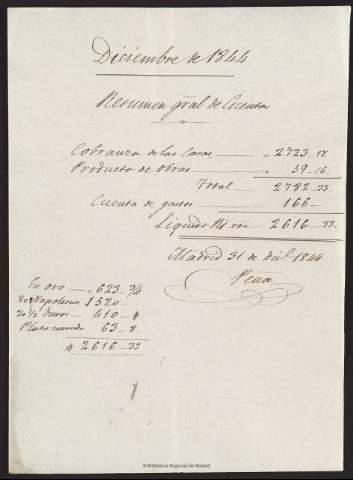 Diciembre de 1844
Resumen gral de Cuenta
Cobranza de las Casas 2723.. 17.
Producto de Obras 59.. 16..
Total 2782.. 33
Cuenta de gastos 166 ..
Liquido Rs von 2616.. 33..
Madrid 31 de dil 1844
Peña
En oro 623.. 3/4
80 Napoleones 1520..
20 1/2 duros 410..
Plata menuda 63.. 8.
2616.. 33
© Biblioteca Regional de Madrid